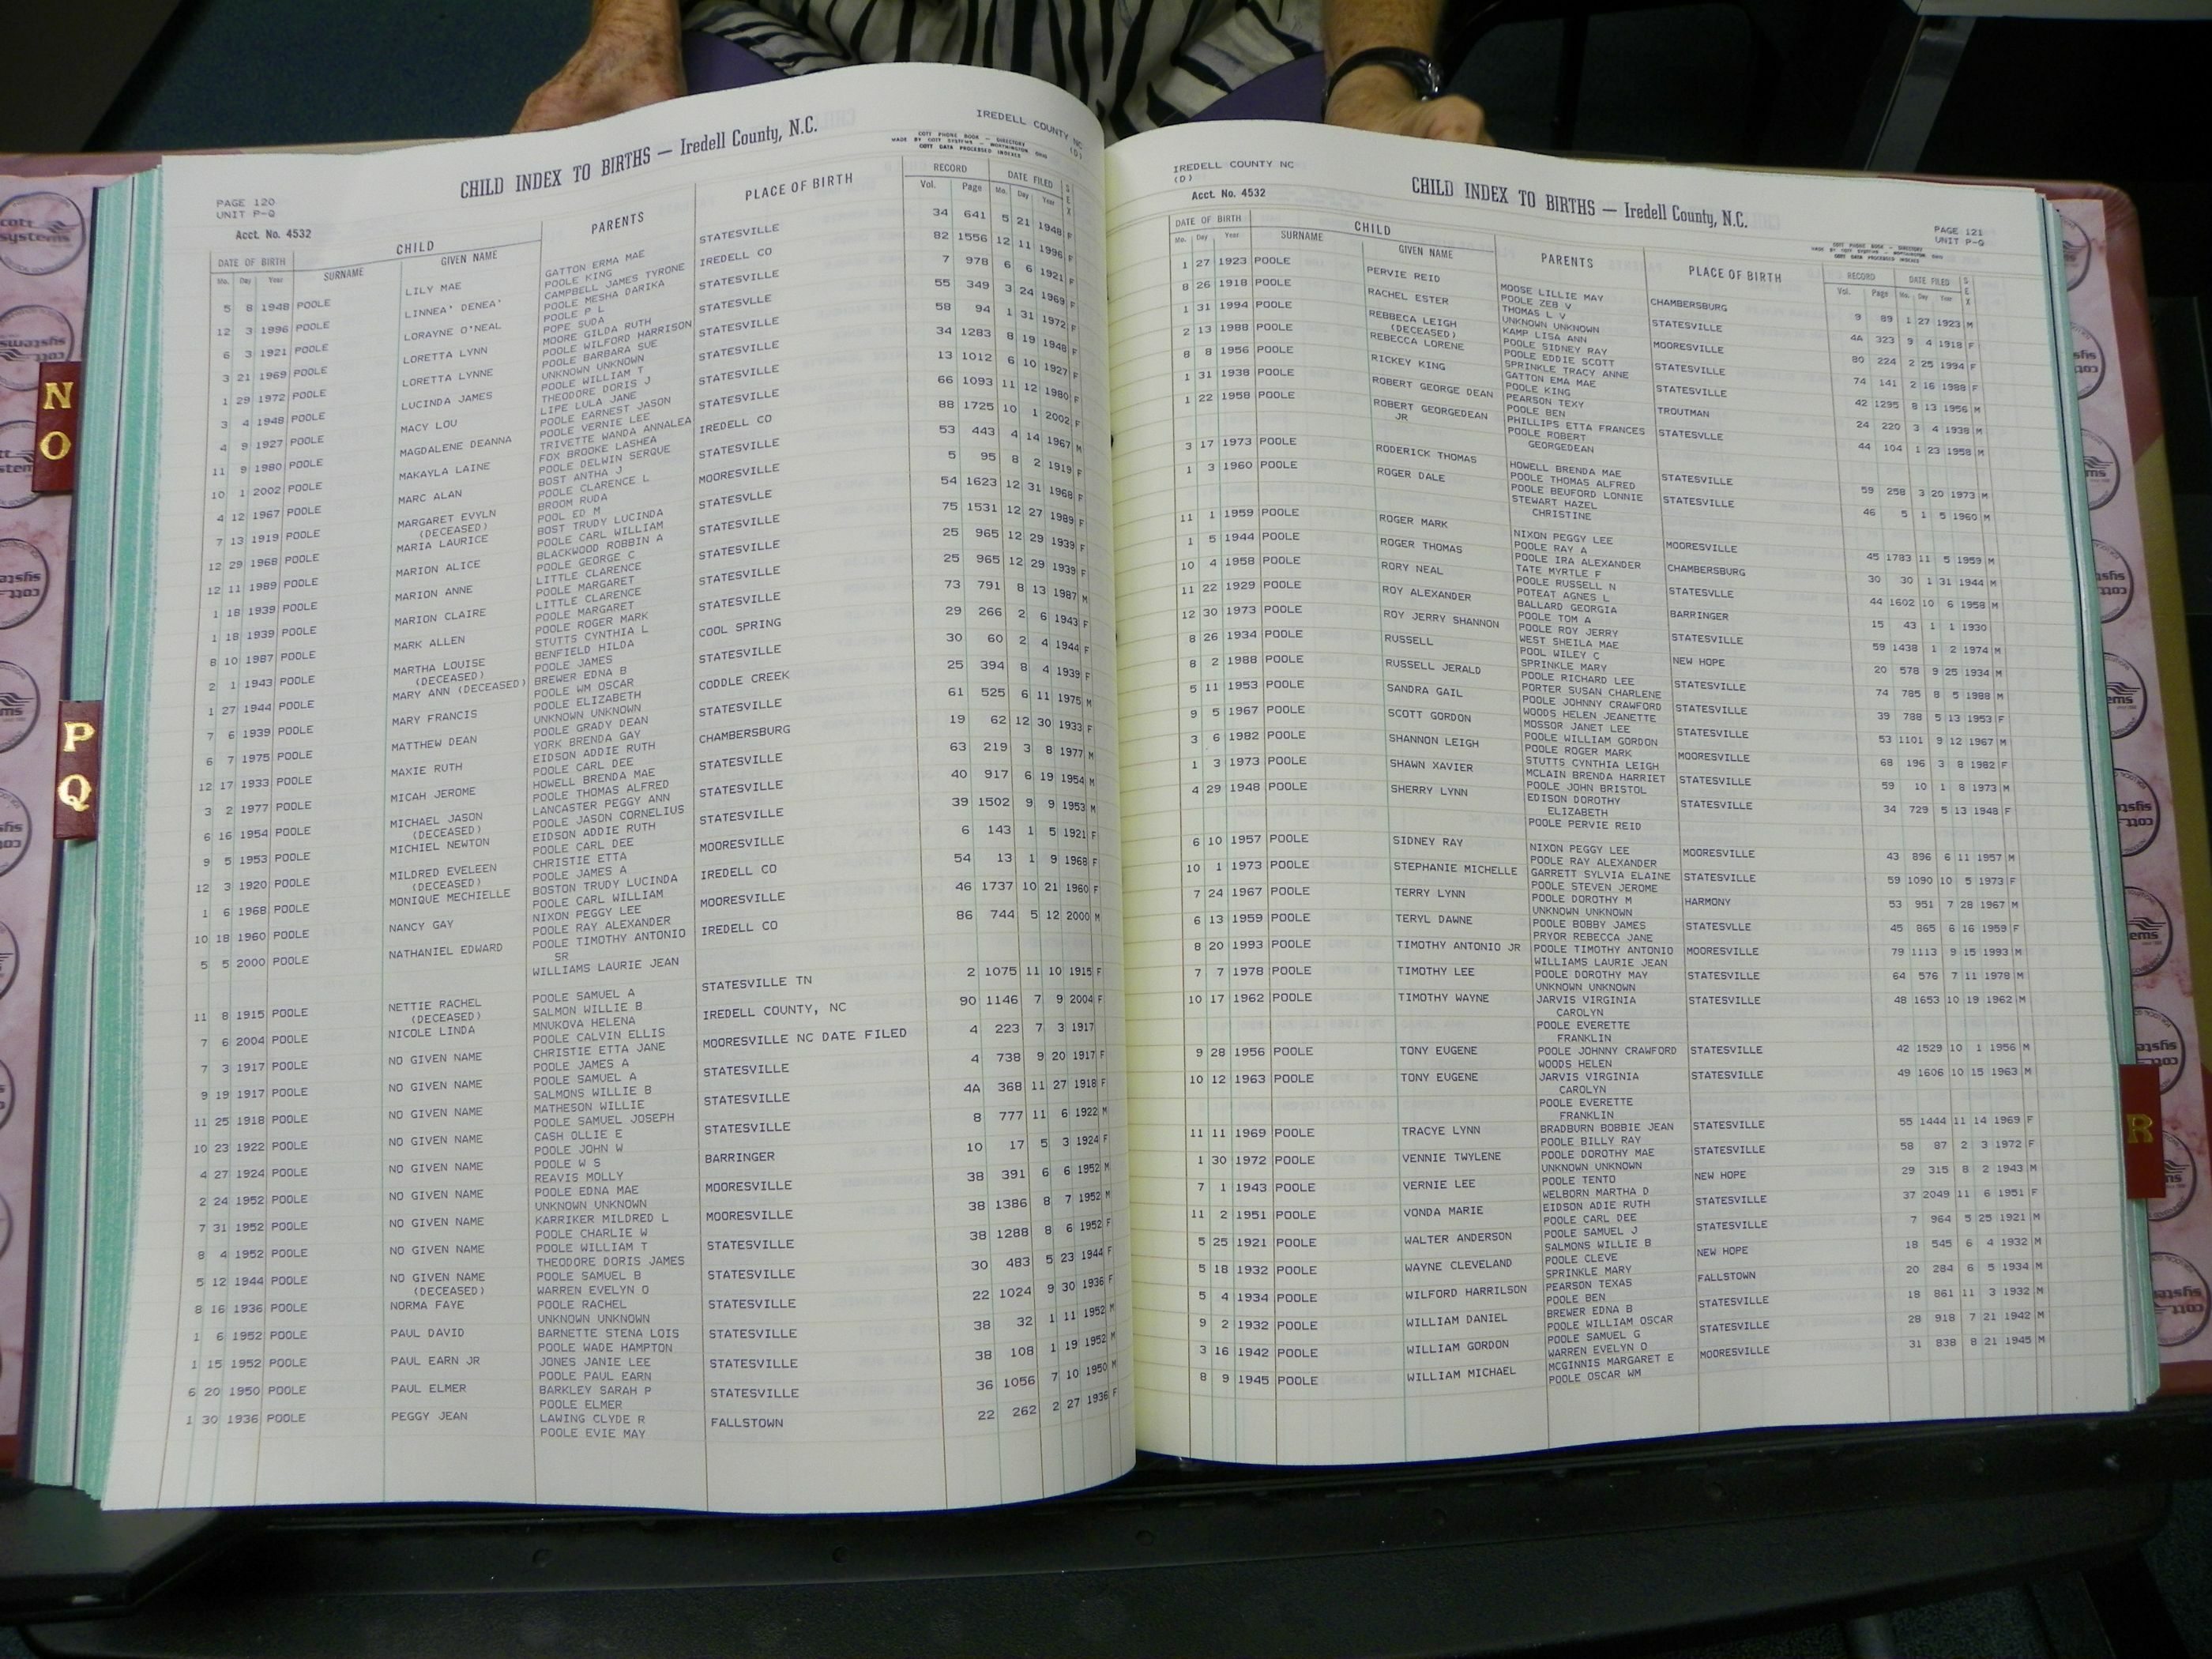 IREDELL COUNTY NC
(D)
CHILD INDEX TO BIRTHS — Iredell County, N.C.
COTT PHONE BOOK — DIRECTORY
MADE BY COTT SYSTEMS — WORTHINGTON OHIO
COTT DATA PROCESSED INDEXES
PAGE 120
UNIT P-Q
Acct. No. 4532
DATE OF BIRTH CHILD PARENTS PLACE OF BIRTH RECORD DATE FILED SEX
Mo. Day Year SURNAME GIVEN NAME Vol. Page Mo. Day Year
5 8 1948 POOLE LILY MAE GATTON ERMA MAE STATESVILLE 34 641 5 21 1948 F
POOLE KING
12 3 1996 POOLE LINNEA' DENEA' CAMPBELL JAMES TYRONE IREDELL CO 82 1556 12 11 1996 F
POOLE MESHA DARIKA
6 3 1921 POOLE LORAYNE O'NEAL POOLE P L STATESVILLE 7 978 6 6 1921 F
POPE SUDA
3 21 1969 POOLE LORETTA LYNN MOORE GILDA RUTH STATESVLLE 55 349 3 24 1969 F
POOLE WILFORD HARRISON
1 29 1972 POOLE LORETTA LYNNE POOLE BARBARA SUE STATESVILLE 58 94 1 31 1972 F
UNKNOWN UNKNOWN
3 4 1948 POOLE LUCINDA JAMES POOLE WILLIAM T STATESVILLE 34 1283 8 19 1948 F
THEODORE DORIS J
4 9 1927 POOLE MACY LOU LIPE LULA JANE STATESVILLE 13 1012 6 10 1927 F
POOLE EARNEST JASON
11 9 1980 POOLE MAGDALENE DEANNA POOLE VERNIE LEE STATESVILLE 66 1093 11 12 1980 F
TRIVETTE WANDA ANNALEA
10 1 2002 POOLE MAKAYLA LAINE FOX BROOKE LASHEA IREDELL CO 88 1725 10 1 2002 F
POOLE DELWIN SERQUE
4 12 1967 POOLE MARC ALAN BOST ANTHA J STATESVILLE 53 443 4 14 1967 M
POOLE CLARENCE L
7 13 1919 POOLE MARGARET EVYLN BROOM RUDA MOORESVILLE 5 95 8 2 1919 F
(DECEASED) POOL ED M
12 29 1968 POOLE MARIA LAURICE BOST TRUDY LUCINDA STATESVLLE 54 1623 12 31 1968 F
POOLE CARL WILLIAM
12 11 1989 POOLE MARION ALICE BLACKWOOD ROBBIN A STATESVILLE 75 1531 12 27 1989 F
POOLE GEORGE C
1 18 1939 POOLE MARION ANNE LITTLE CLARENCE STATESVILLE 25 965 12 29 1939 F
POOLE MARGARET
1 18 1939 POOLE MARION CLAIRE LITTLE CLARENCE STATESVILLE 25 965 12 29 1939 F
POOLE MARGARET
8 10 1987 POOLE MARK ALLEN POOLE ROGER MARK STATESVILLE 73 791 8 13 1987 M
STUTTS CYNTHIA L
2 1 1943 POOLE MARTHA LOUISE BENFIELD HILDA COOL SPRING 29 266 2 6 1943 F
(DECEASED) POOLE JAMES
1 27 1944 POOLE MARY ANN (DECEASED) BREWER EDNA B STATESVILLE 30 60 2 4 1944 F
POOLE WM OSCAR
7 6 1939 POOLE MARY FRANCIS POOLE ELIZABETH CODDLE CREEK 25 394 8 4 1939 F
UNKNOWN UNKNOWN
6 7 1975 POOLE MATTHEW DEAN POOLE GRADY DEAN STATESVILLE 61 525 6 11 1975 M
YORK BRENDA GAY
12 17 1933 POOLE MAXIE RUTH EIDSON ADDIE RUTH CHAMBERSBURG 19 62 12 30 1933 F
POOLE CARL DEE
3 2 1977 POOLE MICAH JEROME HOWELL BRENDA MAE STATESVILLE 63 219 3 8 1977 M
POOLE THOMAS ALFRED
6 16 1954 POOLE MICHAEL JASON LANCASTER PEGGY ANN STATESVILLE 40 917 6 19 1954 M
(DECEASED) POOLE JASON CORNELIUS
9 5 1953 POOLE MICHIEL NEWTON EIDSON ADDIE RUTH STATESVILLE 39 1502 9 9 1953 M
POOLE CARL DEE
12 3 1920 POOLE MILDRED EVELEEN CHRISTIE ETTA MOORESVILLE 6 143 1 5 1921 F
(DECEASED) POOLE JAMES A
1 6 1968 POOLE MONIQUE MECHIELLE BOSTON TRUDY LUCINDA IREDELL CO 54 13 1 9 1968 F
POOLE CARL WILLIAM
10 18 1960 POOLE NANCY GAY NIXON PEGGY LEE MOORESVILLE 46 1737 10 21 1960 F
POOLE RAY ALEXANDER
5 5 2000 POOLE NATHANIEL EDWARD POOLE TIMOTHY ANTONIO IREDELL CO 86 744 5 12 2000 M
SR
WILLIAMS LAURIE JEAN
11 8 1915 POOLE NETTIE RACHEL POOLE SAMUEL A STATESVILLE TN 2 1075 11 10 1915 F
(DECEASED) SALMON WILLIE B
7 6 2004 POOLE NICOLE LINDA MNUKOVA HELENA IREDELL COUNTY, NC 90 1146 7 9 2004 F
POOLE CALVIN ELLIS
7 3 1917 POOLE NO GIVEN NAME CHRISTIE ETTA JANE MOORESVILLE NC DATE FILED 4 223 7 3 1917
POOLE JAMES A
9 19 1917 POOLE NO GIVEN NAME POOLE SAMUEL A STATESVILLE 4 738 9 20 1917 F
SALMONS WILLIE B
11 25 1918 POOLE NO GIVEN NAME MATHESON WILLIE STATESVILLE 4A 368 11 27 1918 F
POOLE SAMUEL JOSEPH
10 23 1922 POOLE NO GIVEN NAME CASH OLLIE E STATESVILLE 8 777 11 6 1922 M
POOLE JOHN W
4 27 1924 POOLE NO GIVEN NAME POOLE W S BARRINGER 10 17 5 3 1924 F
REAVIS MOLLY
2 24 1952 POOLE NO GIVEN NAME POOLE EDNA MAE MOORESVILLE 38 391 6 6 1952 M
UNKNOWN UNKNOWN
7 31 1952 POOLE NO GIVEN NAME KARRIKER MILDRED L MOORESVILLE 38 1386 8 7 1952 M
POOLE CHARLIE W
8 4 1952 POOLE NO GIVEN NAME POOLE WILLIAM T STATESVILLE 38 1288 8 6 1952 F
THEODORE DORIS JAMES
5 12 1944 POOLE NO GIVEN NAME POOLE SAMUEL B STATESVILLE 30 483 5 23 1944 F
(DECEASED) WARREN EVELYN O
8 16 1936 POOLE NORMA FAYE POOLE RACHEL STATESVILLE 22 1024 9 30 1936 F
UNKNOWN UNKNOWN
1 6 1952 POOLE PAUL DAVID BARNETTE STENA LOIS STATESVILLE 38 32 1 11 1952 M
POOLE WADE HAMPTON
1 15 1952 POOLE PAUL EARN JR JONES JANIE LEE STATESVILLE 38 108 1 19 1952 M
POOLE PAUL EARN
6 20 1950 POOLE PAUL ELMER BARKLEY SARAH P STATESVILLE 36 1056 7 10 1950 M
POOLE ELMER
1 30 1936 POOLE PEGGY JEAN LAWING CLYDE R FALLSTOWN 22 262 2 27 1936 F
POOLE EVIE MAY
IREDELL COUNTY NC
(D)
Acct. No. 4532
CHILD INDEX TO BIRTHS — Iredell County, N.C.
PAGE 121
UNIT P-Q
COTT PHONE BOOK — DIRECTORY
MADE BY COTT SYSTEMS — WORTHINGTON OHIO
COTT DATA PROCESSED INDEXES
DATE OF BIRTH CHILD PARENTS PLACE OF BIRTH RECORD DATE FILED SEX
Mo. Day Year SURNAME GIVEN NAME Vol. Page Mo. Day Year
1 27 1923 POOLE PERVIE REID MOOSE LILLIE MAY CHAMBERSBURG 9 89 1 27 1923 M
POOLE ZEB V
8 26 1918 POOLE RACHEL ESTER THOMAS L V STATESVILLE 4A 323 9 4 1918 F
UNKNOWN UNKNOWN
1 31 1994 POOLE REBBECA LEIGH KAMP LISA ANN MOORESVILLE 80 224 2 25 1994 F
(DECEASED) POOLE SIDNEY RAY
2 13 1988 POOLE REBECCA LORENE POOLE EDDIE SCOTT STATESVILLE 74 141 2 16 1988 F
SPRINKLE TRACY ANNE
8 8 1956 POOLE RICKEY KING GATTON EMA MAE STATESVILLE 42 1295 8 13 1956 M
POOLE KING
1 31 1938 POOLE ROBERT GEORGE DEAN PEARSON TEXY TROUTMAN 24 220 3 4 1938 M
POOLE BEN
1 22 1958 POOLE ROBERT GEORGEDEAN PHILLIPS ETTA FRANCES STATESVLLE 44 104 1 23 1958 M
JR POOLE ROBERT
GEORGEDEAN
3 17 1973 POOLE RODERICK THOMAS HOWELL BRENDA MAE STATESVILLE 59 258 3 20 1973 M
POOLE THOMAS ALFRED
1 3 1960 POOLE ROGER DALE POOLE BEUFORD LONNIE STATESVILLE 46 5 1 5 1960 M
STEWART HAZEL
CHRISTINE
11 1 1959 POOLE ROGER MARK NIXON PEGGY LEE MOORESVILLE 45 1783 11 5 1959 M
POOLE RAY A
1 5 1944 POOLE ROGER THOMAS POOLE IRA ALEXANDER CHAMBERSBURG 30 30 1 31 1944 M
TATE MYRTLE F
10 4 1958 POOLE RORY NEAL POOLE RUSSELL N STATESVLLE 44 1602 10 6 1958 M
POTEAT AGNES L
11 22 1929 POOLE ROY ALEXANDER BALLARD GEORGIA BARRINGER 15 43 1 1 1930
POOLE TOM A
12 30 1973 POOLE ROY JERRY SHANNON POOLE ROY JERRY STATESVILLE 59 1438 1 2 1974 M
WEST SHEILA MAE
8 26 1934 POOLE RUSSELL POOL WILEY C NEW HOPE 20 578 9 25 1934 M
SPRINKLE MARY
8 2 1988 POOLE RUSSELL JERALD POOLE RICHARD LEE STATESVILLE 74 785 8 5 1988 M
PORTER SUSAN CHARLENE
5 11 1953 POOLE SANDRA GAIL POOLE JOHNNY CRAWFORD STATESVILLE 39 788 5 13 1953 F
WOODS HELEN JEANETTE
9 5 1967 POOLE SCOTT GORDON MOSSOR JANET LEE STATESVILLE 53 1101 9 12 1967 M
POOLE WILLIAM GORDON
3 6 1982 POOLE SHANNON LEIGH POOLE ROGER MARK MOORESVILLE 68 196 3 8 1982 F
STUTTS CYNTHIA LEIGH
1 3 1973 POOLE SHAWN XAVIER MCLAIN BRENDA HARRIET STATESVILLE 59 10 1 8 1973 M
POOLE JOHN BRISTOL
4 29 1948 POOLE SHERRY LYNN EDISON DOROTHY STATESVILLE 34 729 5 13 1948 F
ELIZABETH
POOLE PERVIE REID
6 10 1957 POOLE SIDNEY RAY NIXON PEGGY LEE MOORESVILLE 43 896 6 11 1957 M
POOLE RAY ALEXANDER
10 1 1973 POOLE STEPHANIE MICHELLE GARRETT SYLVIA ELAINE STATESVILLE 59 1090 10 5 1973 F
POOLE STEVEN JEROME
7 24 1967 POOLE TERRY LYNN POOLE DOROTHY M HARMONY 53 951 7 28 1967 M
UNKNOWN UNKNOWN
6 13 1959 POOLE TERYL DAWNE POOLE BOBBY JAMES STATESVLLE 45 865 6 16 1959 F
PRYOR REBECCA JANE
8 20 1993 POOLE TIMOTHY ANTONIO JR POOLE TIMOTHY ANTONIO MOORESVILLE 79 1113 9 15 1993 M
WILLIAMS LAURIE JEAN
7 7 1978 POOLE TIMOTHY LEE POOLE DOROTHY MAY STATESVILLE 64 576 7 11 1978 M
UNKNOWN UNKNOWN
10 17 1962 POOLE TIMOTHY WAYNE JARVIS VIRGINIA STATESVILLE 48 1653 10 19 1962 M
CAROLYN
POOLE EVERETTE
FRANKLIN
9 28 1956 POOLE TONY EUGENE POOLE JOHNNY CRAWFORD STATESVILLE 42 1529 10 1 1956 M
WOODS HELEN
10 12 1963 POOLE TONY EUGENE JARVIS VIRGINIA STATESVILLE 49 1606 10 15 1963 M
CAROLYN
POOLE EVERETTE
FRANKLIN
11 11 1969 POOLE TRACYE LYNN BRADBURN BOBBIE JEAN STATESVILLE 55 1444 11 14 1969 F
POOLE BILLY RAY
1 30 1972 POOLE VENNIE TWYLENE POOLE DOROTHY MAE STATESVILLE 58 87 2 3 1972 F
UNKNOWN UNKNOWN
7 1 1943 POOLE VERNIE LEE POOLE TENTO NEW HOPE 29 315 8 2 1943 M
WELBORN MARTHA D
11 2 1951 POOLE VONDA MARIE EIDSON ADIE RUTH STATESVILLE 37 2049 11 6 1951 F
POOLE CARL DEE
5 25 1921 POOLE WALTER ANDERSON POOLE SAMUEL J STATESVILLE 7 964 5 25 1921 M
SALMONS WILLIE B
5 18 1932 POOLE WAYNE CLEVELAND POOLE CLEVE NEW HOPE 18 545 6 4 1932 M
SPRINKLE MARY
5 4 1934 POOLE WILFORD HARRILSON PEARSON TEXAS FALLSTOWN 20 284 6 5 1934 M
POOLE BEN
9 2 1932 POOLE WILLIAM DANIEL BREWER EDNA B STATESVILLE 18 861 11 3 1932 M
POOLE WILLIAM OSCAR
3 16 1942 POOLE WILLIAM GORDON POOLE SAMUEL G STATESVILLE 28 918 7 21 1942 M
WARREN EVELYN O
8 9 1945 POOLE WILLIAM MICHAEL MCGINNIS MARGARET E MOORESVILLE 31 838 8 21 1945 M
POOLE OSCAR WM
N
O
P
Q
R
cott
systems